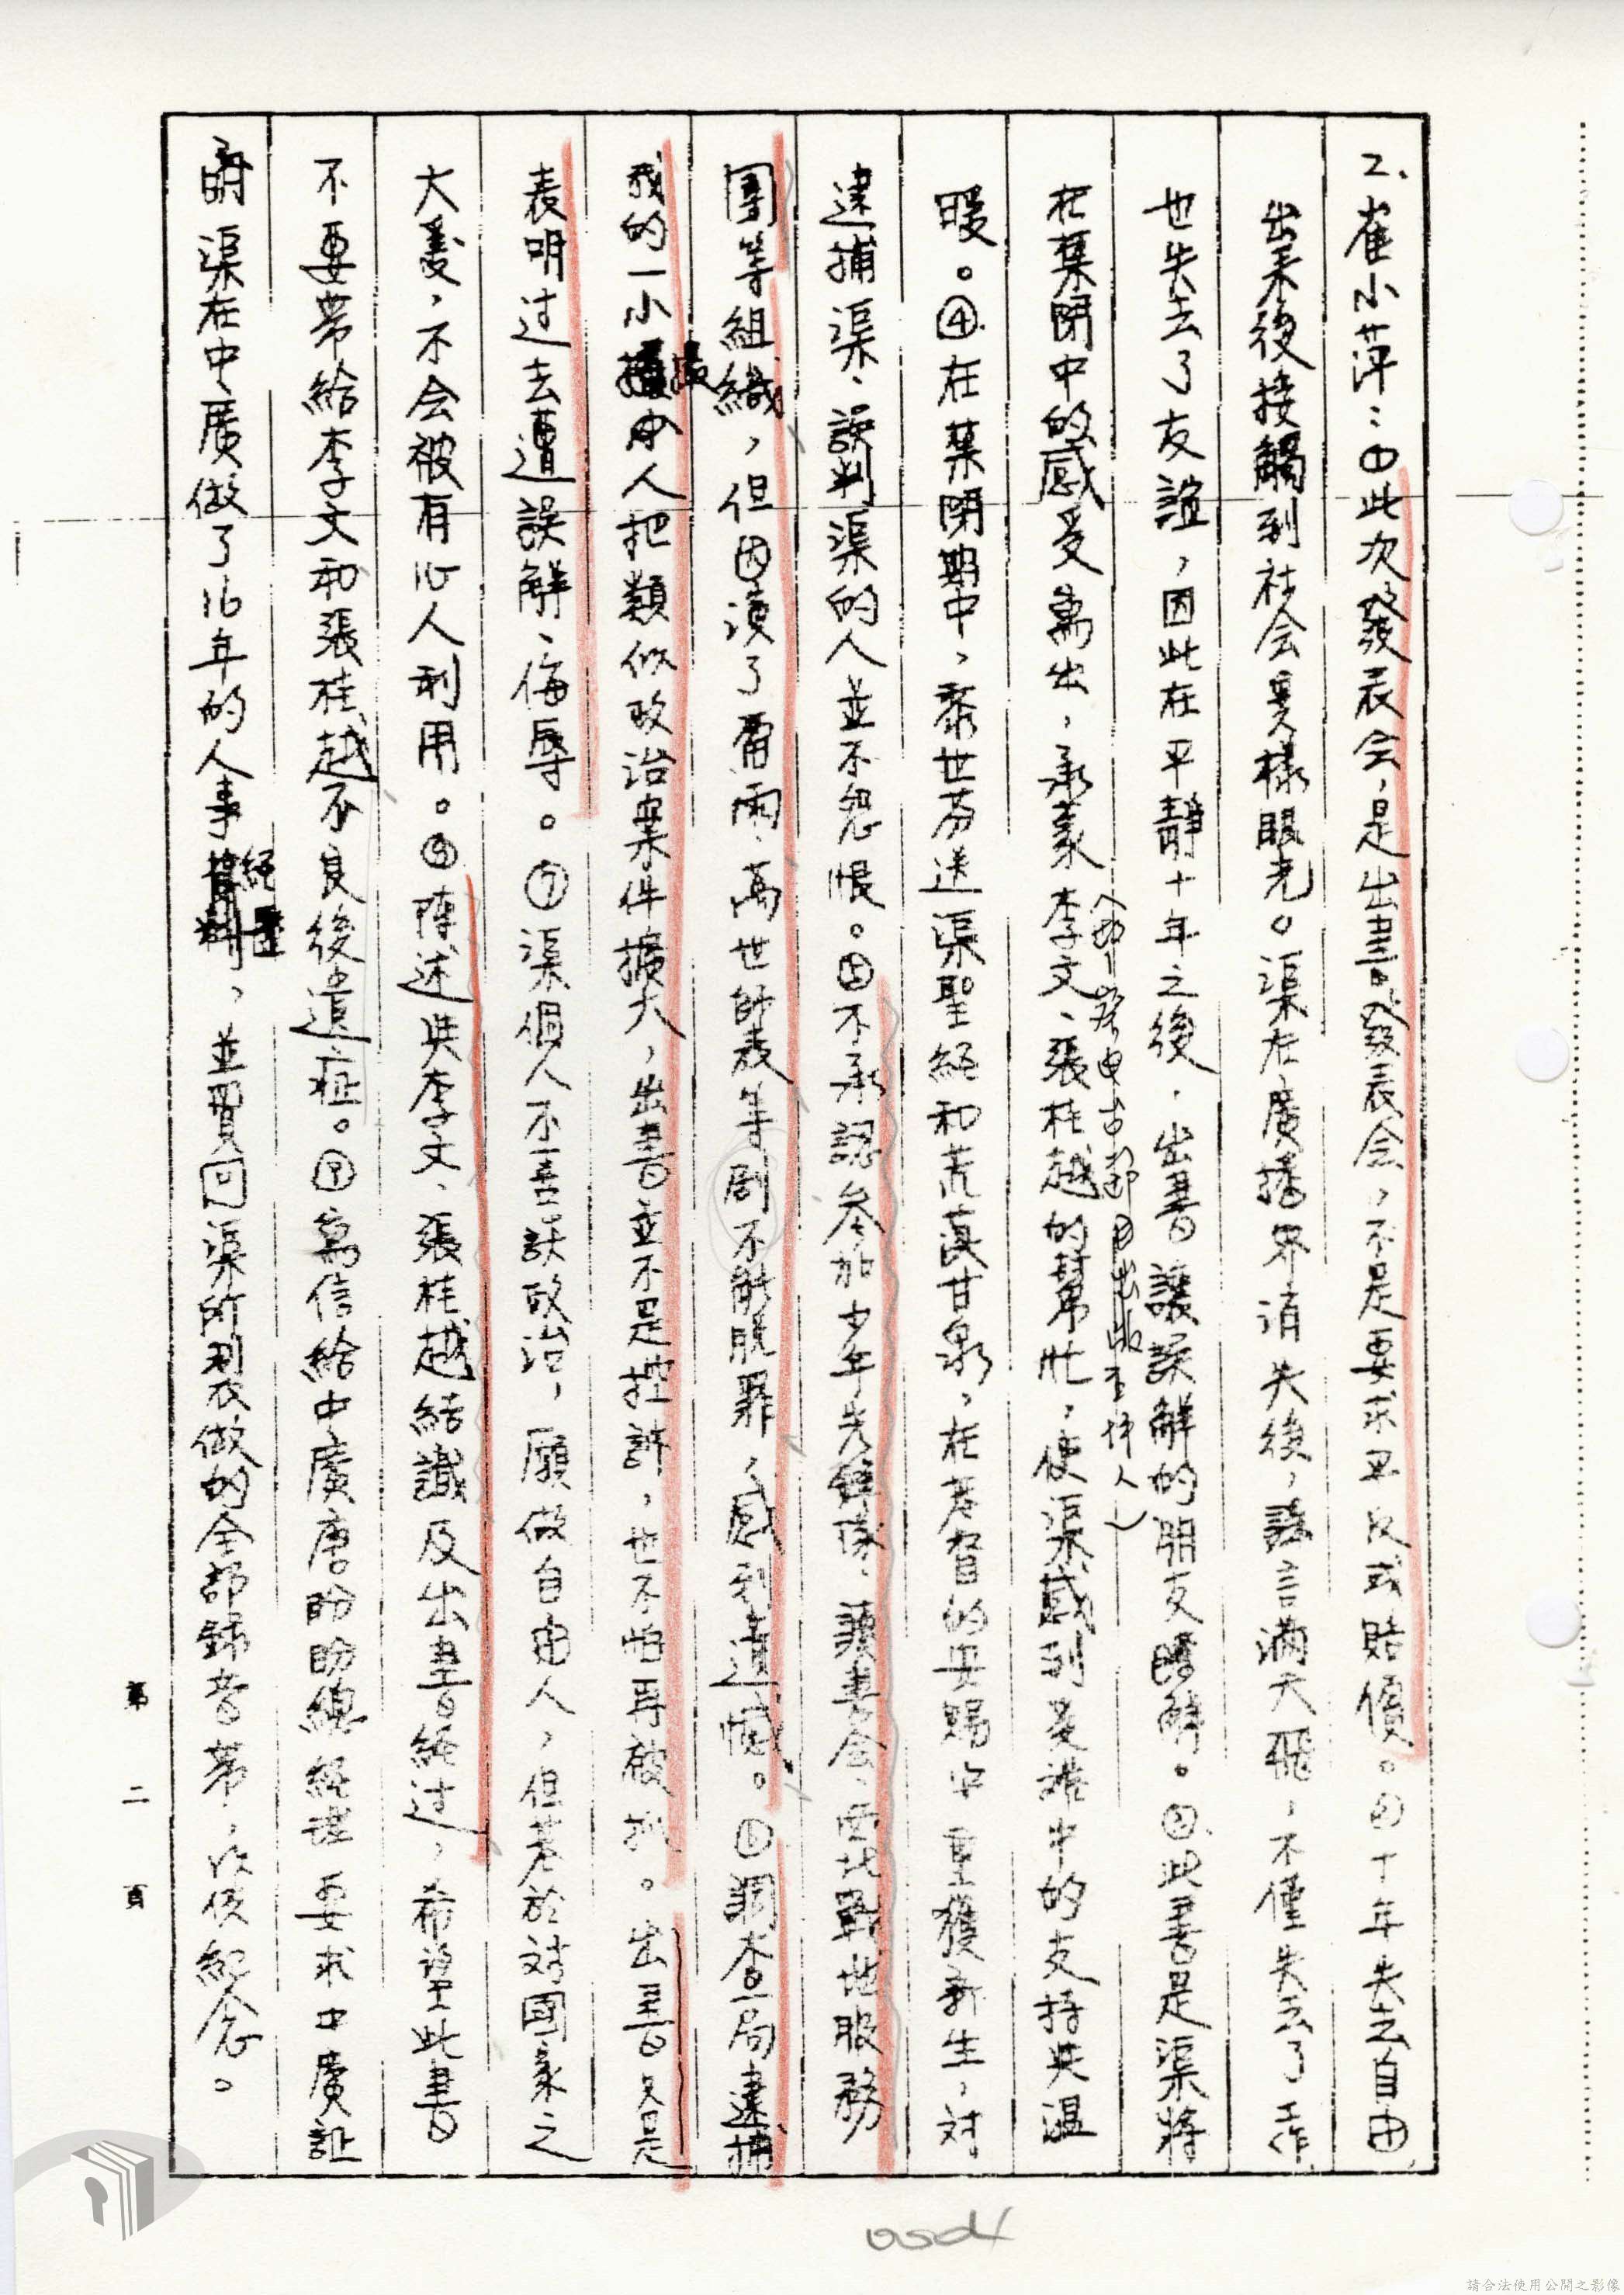 2.崔小萍:①此次發表会,是出書發表会,不是要求平反或賠償。②十年失去自由
出來後接觸到社会異樣眼光。渠在廣播界消失後,謠言滿天飛,不僅失去了工作
也失去了友誼,因此在平靜十年之後,出書讓誤解的朋友瞭解。③此書是渠將
在葉閉中的感受寫出,承蒙李文、張桂越的幫忙,使渠感到受難中的支持與溫
出版
暖。④在葉閉期中,黎世芬送渠聖經和荒漠甘泉,在基督的恩賜中重獲新生,对
逮捕渠、誤判渠的人並不怨恨。⑤不承認参加少年先鋒隊、讀書会、西北戰地服務
團等組織,但因演了雷雨、萬世師表等剧不能脫罪,感到遺憾。⑥調查局逮捕
我的一小撮人把類似政治案件擴大,出書並不是控訴,也不怕再被抓。出書只是
表明过去遭誤解、侮辱。⑦渠個人不喜談政治,願做自由人,但基於对國家之
大愛,不会被有心人利用。⑧陳述與李文、張桂越結識及出書經过,希望此書
不要帶給李文和張桂越不良後遺症。⑨寫信給中廣唐盼盼總經理要求中廣証
明渠在中廣做了16年的人事經歷,並買回渠所制衣做的全部錄音帶,以供紀念。
第二頁
0504
請合法使用公開之影像